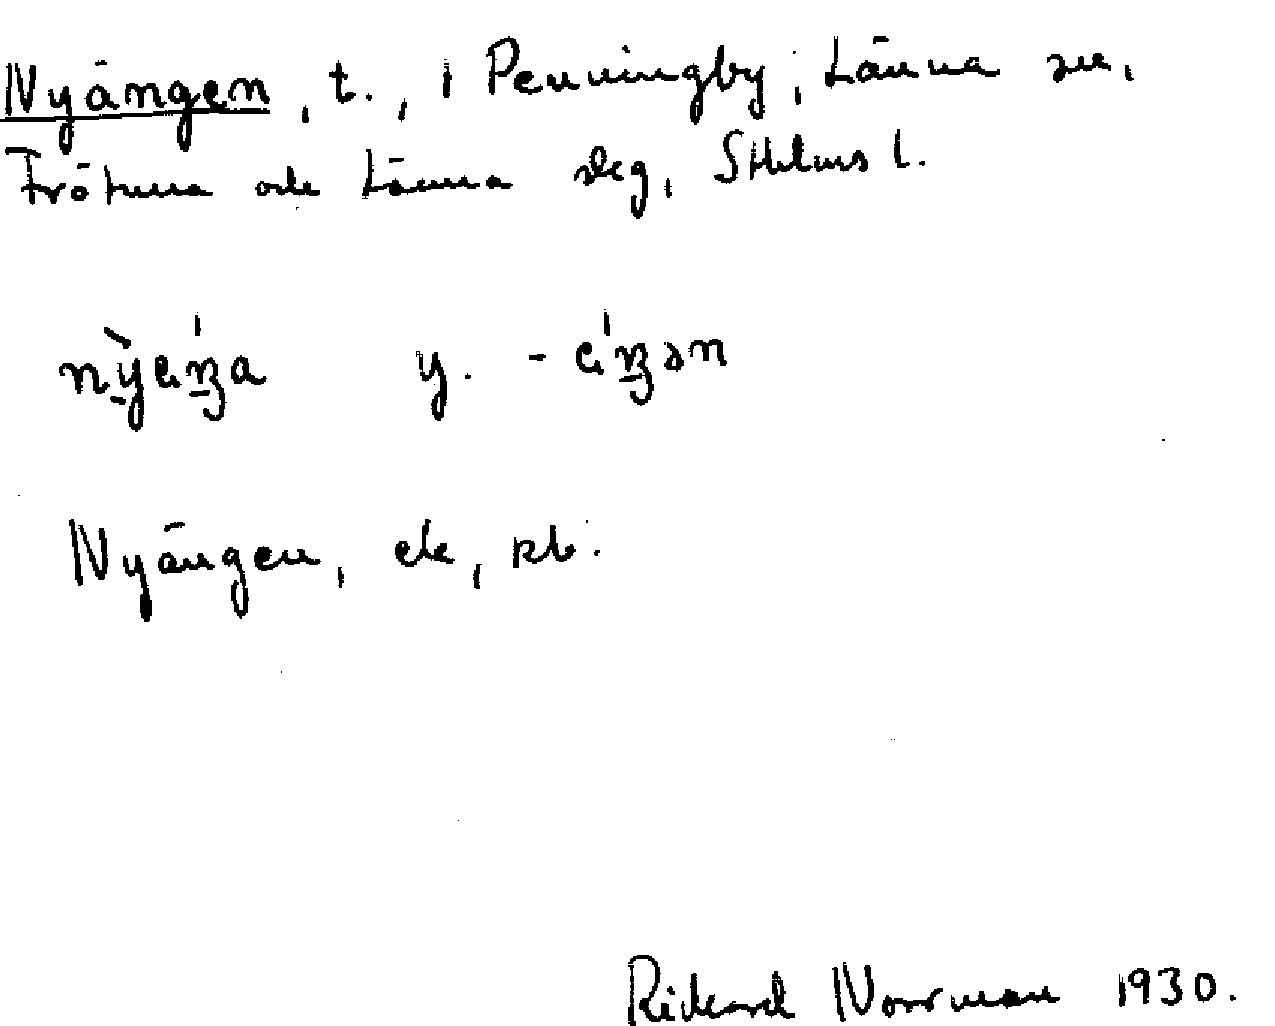 Nyängen, t., i Penningby, Länna sn,
Frötuna och Länna skg, Sthlms l.
y.
Nyängen, ek, kb.
Rickard Norrman 1930.